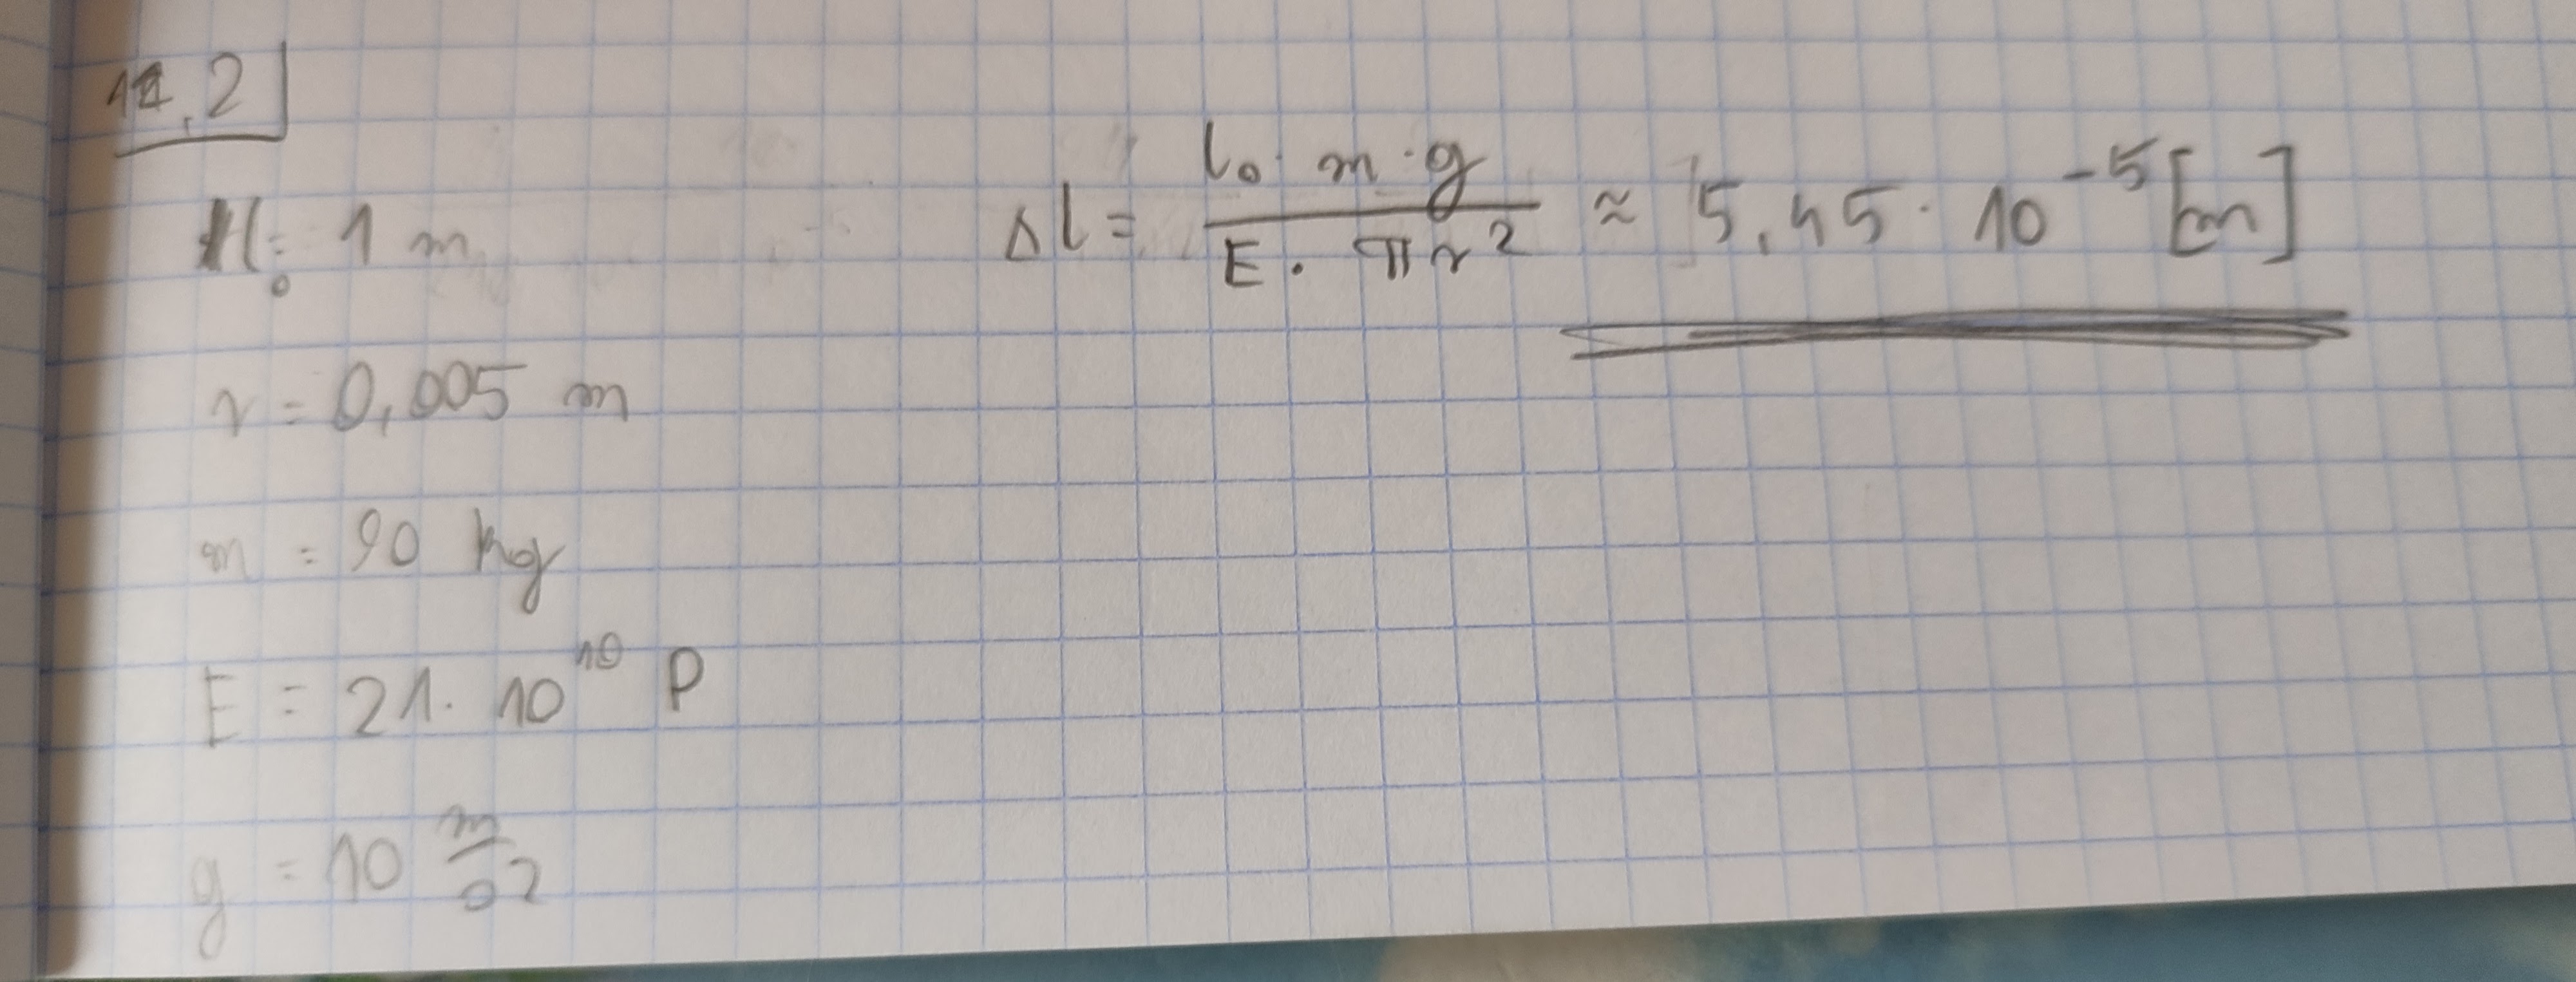 11.2
l₀ = 1 m
r = 0,005 m
m = 90 kg
E = 21 · 10¹⁰ P
g = 10 m/s²
Δl = (l₀ · m · g)/(E · πr²) ≈ 5,45 · 10⁻⁵ [m]